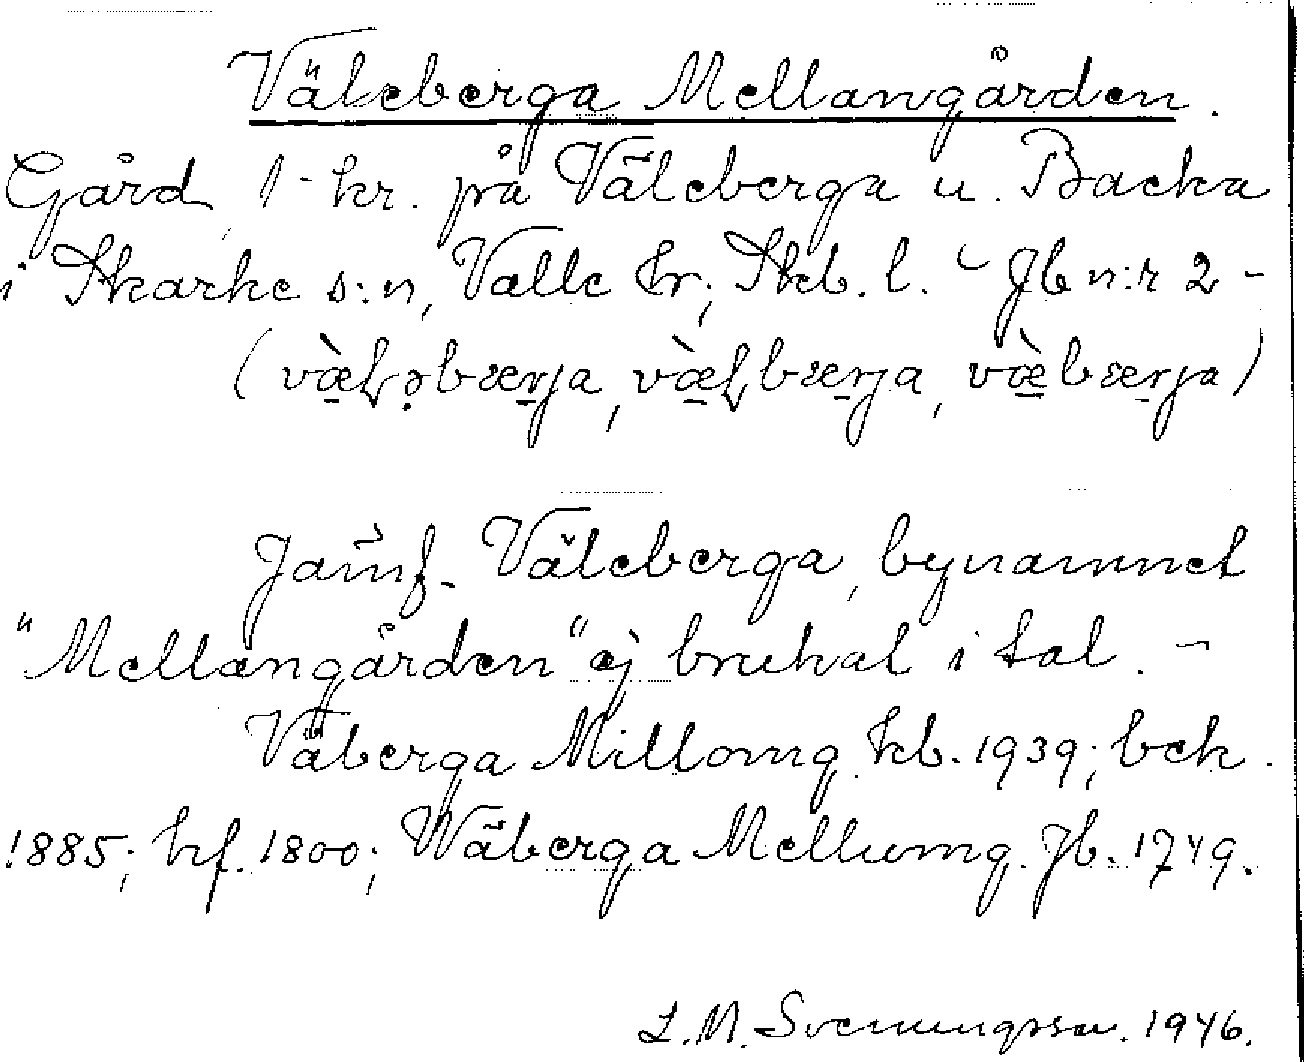 Väleberga Mellangården.
Gård, 1 kr. på Väleberga u. Backa
i Skarke s:n, Valle hr; Skb. l. Jb n:r 2 -
(væ̀ɫəbærja, væ̀ɫbærja, væ̀bærja)
Jämf. Väleberga, bynamnet
"Mellangården" ej brukat i tal. -
Väberga Millomg. kb. 1939; bek.
1885; hf. 1800; Wäberga Mellumg. Jb. 1749.
L.M. Svenungsson. 1946.